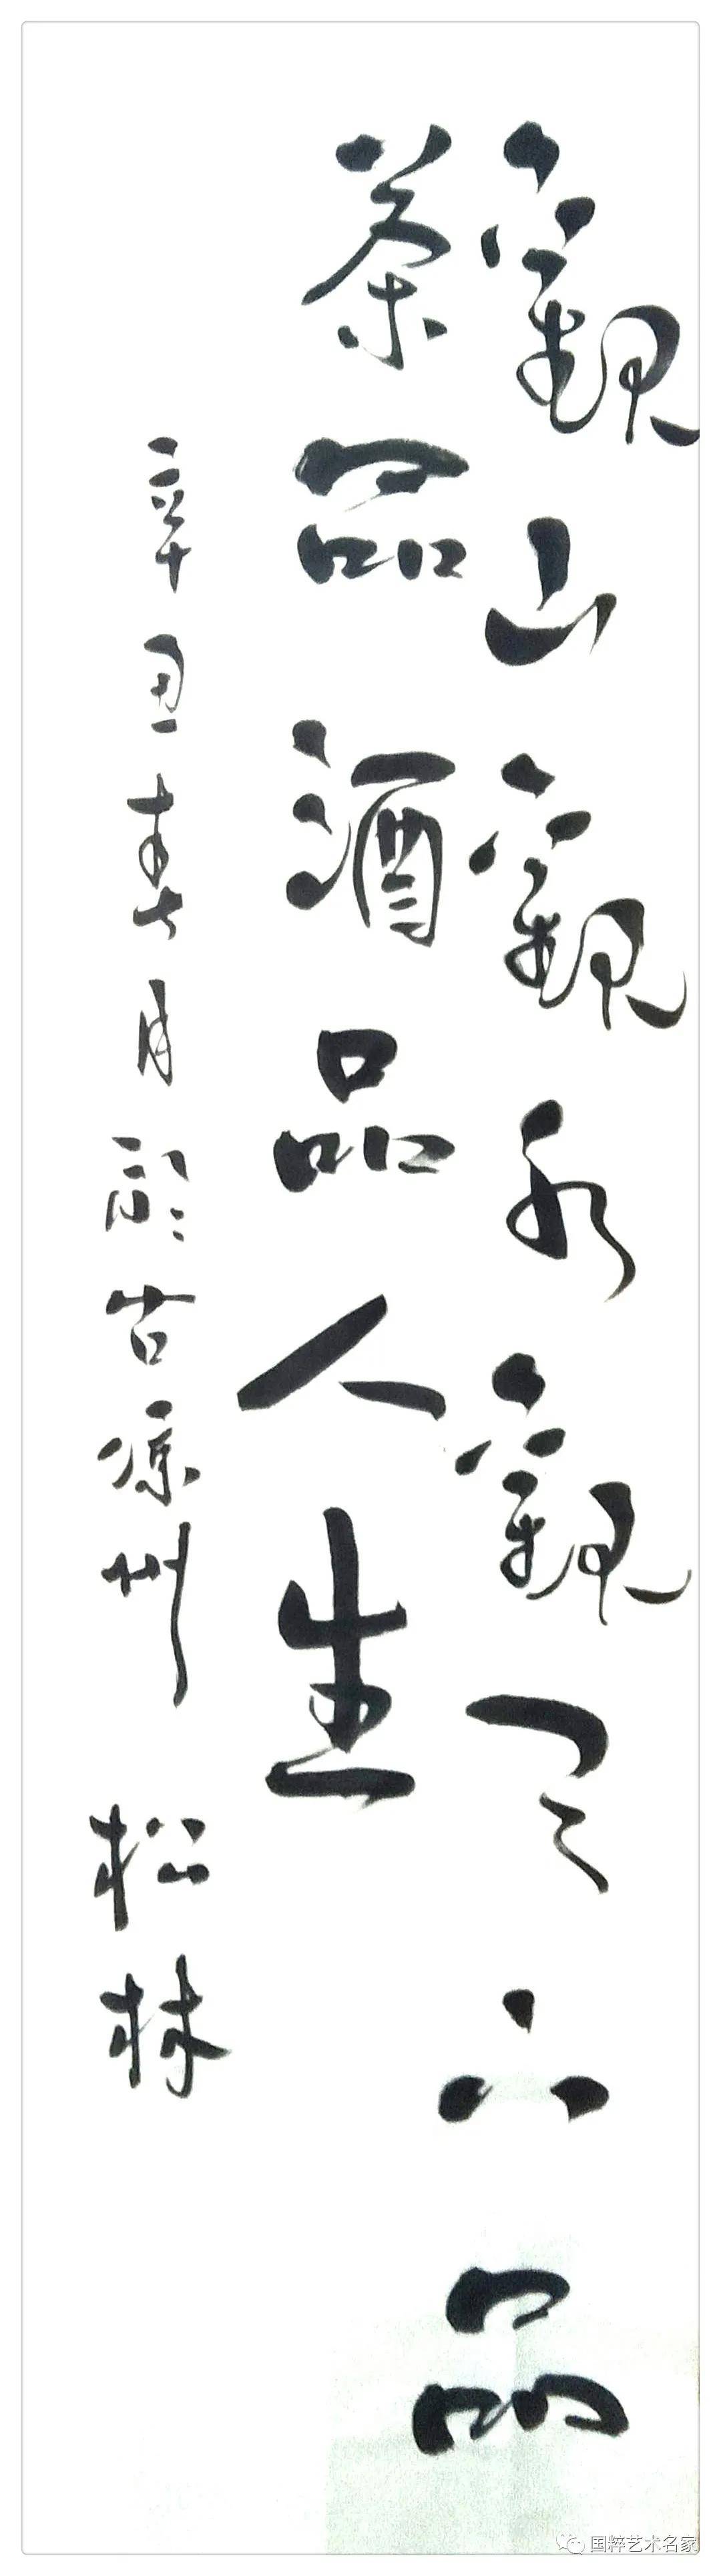 觀山觀水觀天下品
茶品酒品人生
辛丑春月於古凉州 松林
国粹艺术名家